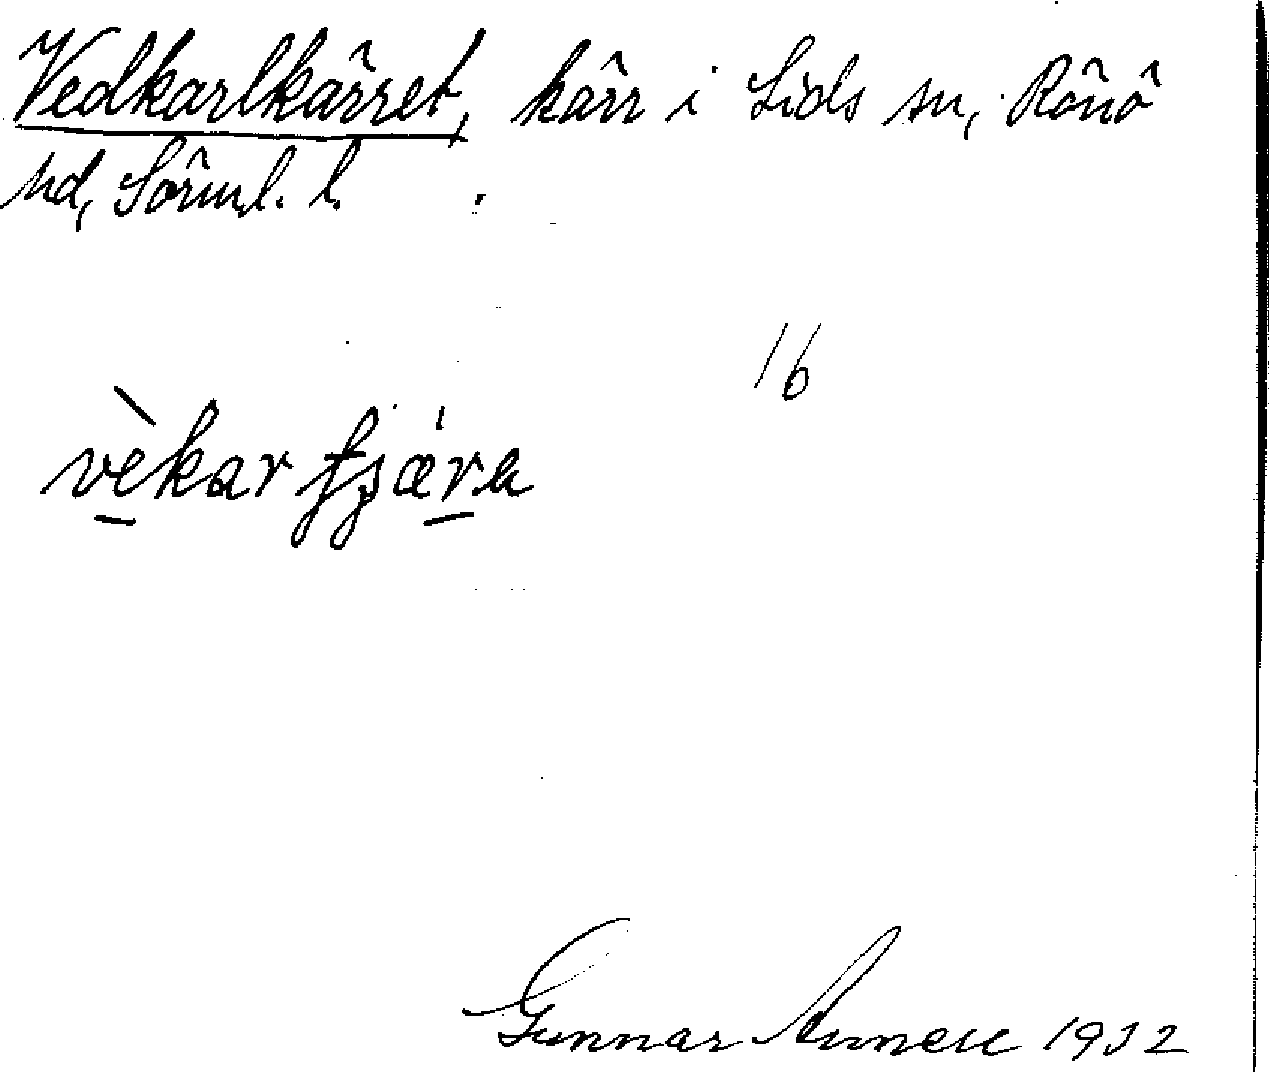 Vedkarlkärret, kärr i Lids sn, Rönö
hd, Sörml. l.
16
vèkar fjǽra
Gunnar Annell 1932